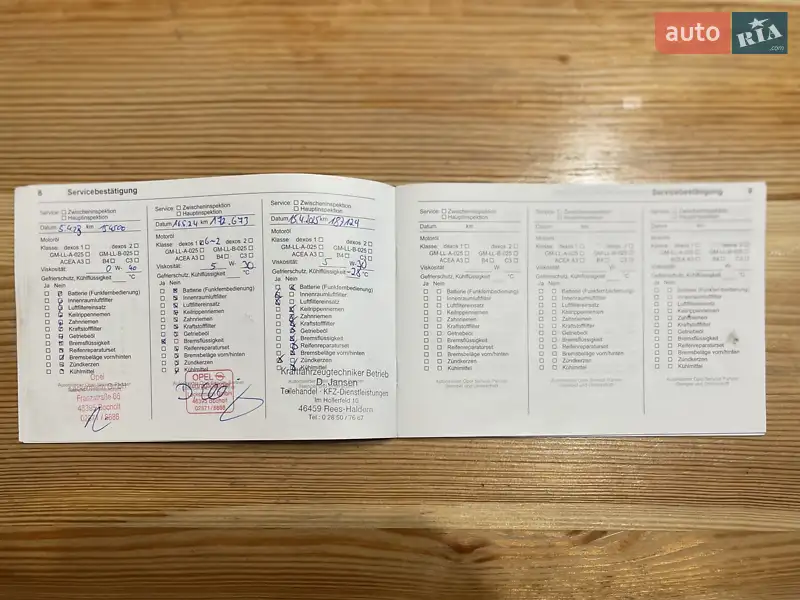 auto RIA .com
8 Servicebestätigung
Service: Zwischeninspektion
Hauptinspektion
Datum km
Motoröl
Klasse: dexos 1 dexos 2
GM-LL-A-025 GM-LL-B-025
ACEA A3 B4 C3
Viskosität: 0 W- 40
Gefrierschutz, Kühlflüssigkeit °C
Ja Nein
Batterie (Funkfernbedienung)
Innenraumluftfilter
Luftfiltereinsatz
Keilrippenriemen
Zahnriemen
Kraftstofffilter
Getriebeöl
Bremsflüssigkeit
Reifenreparaturset
Bremsbeläge vorn/hinten
Zündkerzen
Kühlmittel
Opel
46395 Bocholt
Service: Zwischeninspektion
Hauptinspektion
Datum km 172.673
Motoröl
Klasse: dexos 1 dexos 2
GM-LL-A-025 GM-LL-B-025
ACEA A3 B4 C3
Viskosität: 5 W- 30
Gefrierschutz, Kühlflüssigkeit °C
Ja Nein
Batterie (Funkfernbedienung)
Innenraumluftfilter
Luftfiltereinsatz
Keilrippenriemen
Zahnriemen
Kraftstofffilter
Getriebeöl
Bremsflüssigkeit
Reifenreparaturset
Bremsbeläge vorn/hinten
Zündkerzen
Kühlmittel
OPEL
46395 Bocholt
02871 / 8686
Service: Zwischeninspektion
Hauptinspektion
Datum km
Motoröl
Klasse: dexos 1 dexos 2
GM-LL-A-025 GM-LL-B-025
ACEA A3 B4 C3
Viskosität: 5 W- 30
Gefrierschutz, Kühlflüssigkeit -28 °C
Ja Nein
Batterie (Funkfernbedienung)
Innenraumluftfilter
Luftfiltereinsatz
Keilrippenriemen
Zahnriemen
Kraftstofffilter
Getriebeöl
Bremsflüssigkeit
Reifenreparaturset
Bremsbeläge vorn/hinten
Zündkerzen
Kühlmittel
Kraftfahrzeugtechniker Betrieb
D. Jansen
Teilehandel · KFZ-Dienstleistungen
Im Hollerfeld 10
46459 Rees-Haldern
Tel.: 0 28 50 / 76 67
Servicebestätigung 9
Service: Zwischeninspektion
Hauptinspektion
Datum km
Motoröl
Klasse: dexos 1 dexos 2
GM-LL-A-025 GM-LL-B-025
ACEA A3 B4 C3
Viskosität: W-
Gefrierschutz, Kühlflüssigkeit °C
Ja Nein
Batterie (Funkfernbedienung)
Innenraumluftfilter
Luftfiltereinsatz
Keilrippenriemen
Zahnriemen
Kraftstofffilter
Getriebeöl
Bremsflüssigkeit
Reifenreparaturset
Bremsbeläge vorn/hinten
Zündkerzen
Kühlmittel
Service: Zwischeninspektion
Hauptinspektion
Datum km
Motoröl
Klasse: dexos 1 dexos 2
GM-LL-A-025 GM-LL-B-025
ACEA A3 B4 C3
Viskosität: W-
Gefrierschutz, Kühlflüssigkeit °C
Ja Nein
Batterie (Funkfernbedienung)
Innenraumluftfilter
Luftfiltereinsatz
Keilrippenriemen
Zahnriemen
Kraftstofffilter
Getriebeöl
Bremsflüssigkeit
Reifenreparaturset
Bremsbeläge vorn/hinten
Zündkerzen
Kühlmittel
Service: Zwischeninspektion
Hauptinspektion
Datum km
Motoröl
Klasse: dexos 1 dexos 2
GM-LL-A-025 GM-LL-B-025
ACEA A3 B4 C3
Viskosität: W-
Gefrierschutz, Kühlflüssigkeit °C
Ja Nein
Batterie (Funkfernbedienung)
Innenraumluftfilter
Luftfiltereinsatz
Keilrippenriemen
Zahnriemen
Kraftstofffilter
Getriebeöl
Bremsflüssigkeit
Reifenreparaturset
Bremsbeläge vorn/hinten
Zündkerzen
Kühlmittel